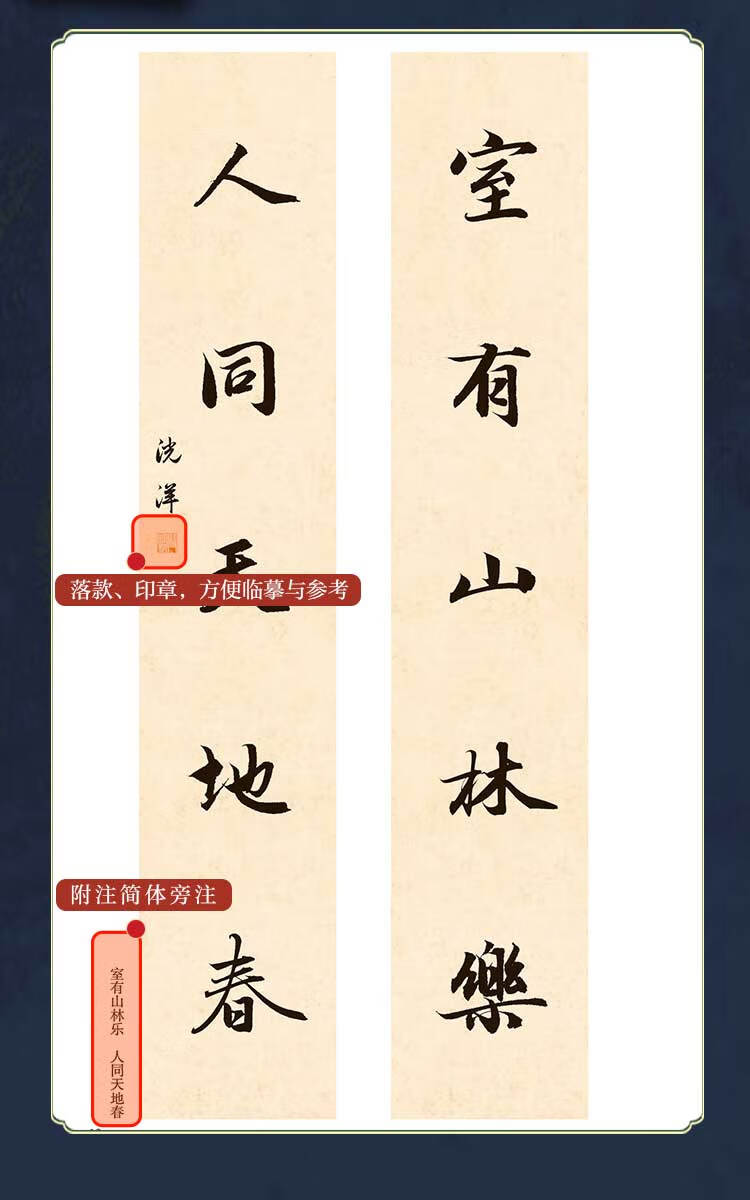 室有山林樂
人同天地春
洸洋
落款、印章，方便临摹与参考
附注简体旁注
室有山林乐 人同天地春